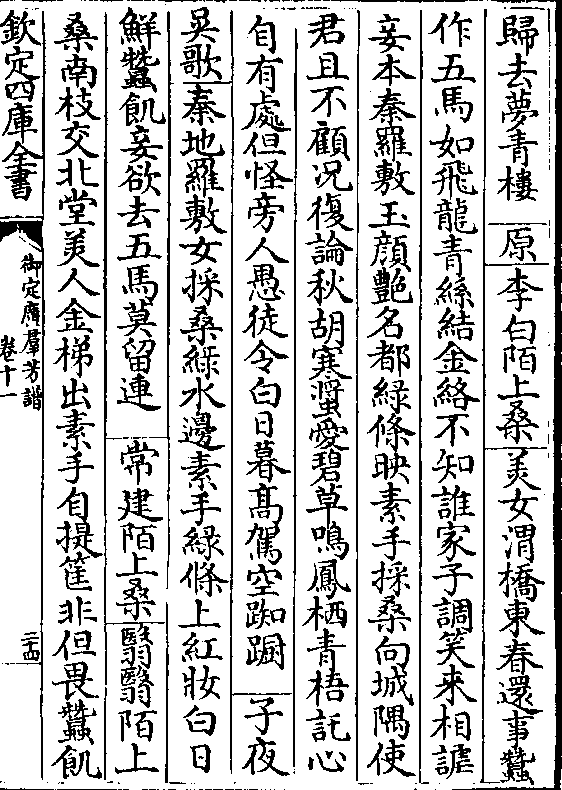 歸去夢青樓 原 李白陌上桑 美女渭橋東春還事蠶
作五馬如飛龍青絲結金絡不知誰家子調笑来相謔
妾本秦羅敷玉顔艷名都緑條映素手採桑向城隅使
君且不顧况復論秋胡寒螿愛碧草鳴鳳栖青梧託心
自有處但怪旁人愚徒令白日暮髙駕空踟蹰 子夜
吳歌 秦地羅敷女採桑緑水邊素手緑條上紅妝白日
鮮蠶飢妾欲去五馬莫留連 常建陌上桑 翳翳陌上
桑南枝交北堂美人金梯出素手自提筐非但畏蠶飢
欽定四庫全書
御定廣羣芳譜
卷十一
二十四